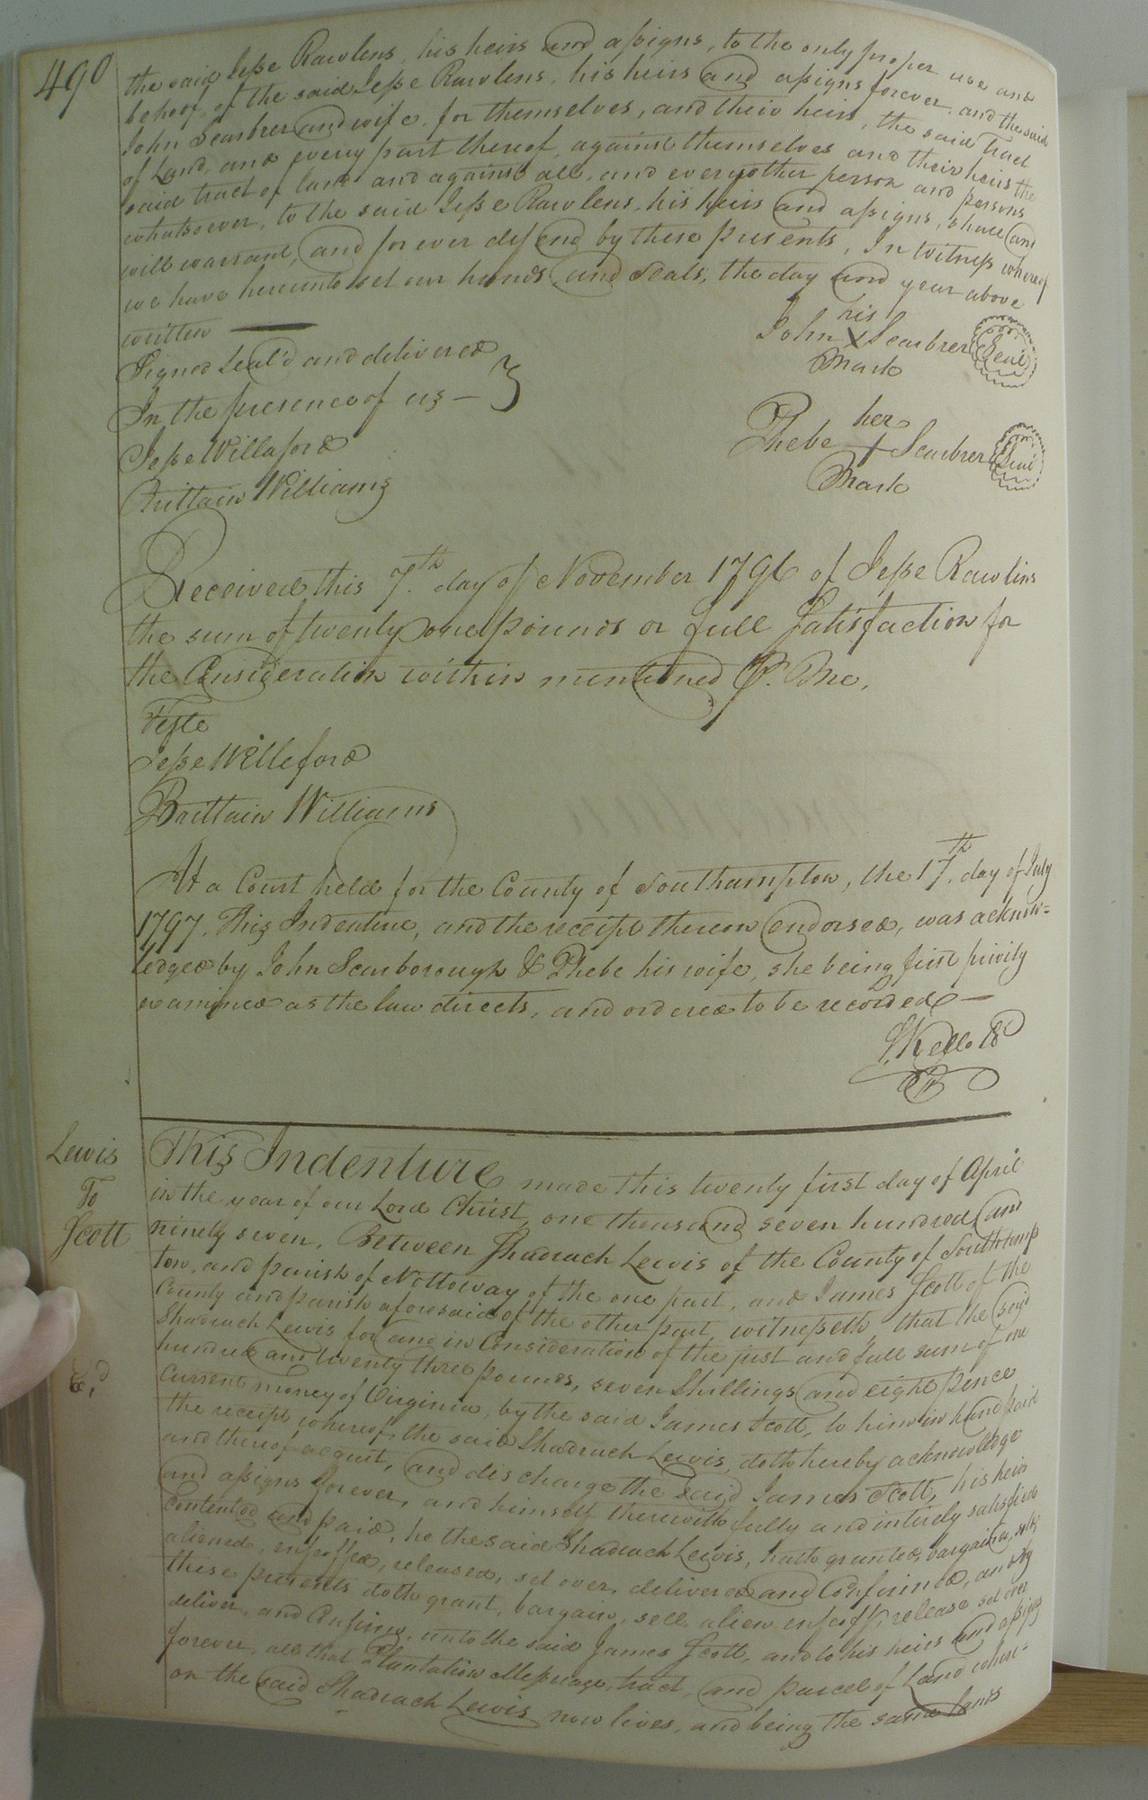 490
the said Jesse Rawlens, his heirs and assigns, to the only proper use and
behoof, of the said Jesse Rawlens, his heirs and assigns forever, and the said
John Scarbrer and wife, for themselves, and their heirs, the said Tract
of Land, and every part thereof, against themselves and their heirs the
said tract of land and against all, and every other person and persons
whatsoever, to the said Jesse Rawlens, his heirs and assigns, shall and
will warrant, and forever defend by these presents, In Witness whereof
we have hereunto set our hands, and Seals, the day and year above
written
Signed Seal'd and delivered
In the presence of us —
Jesse Willaford
Brittain Williams
his
John X Scarbrer Seal
Mark
her
Phebe + Scarbrer Seal
Mark
Received this 7th day of November 1796 of Jesse Rawlins
the sum of twenty one pounds or full Satisfaction for
the Consideration within mentioned P. Me.
Teste
Jesse Willeford
Brittain Williams
At a Court held for the County of Southampton, the 17th day of July
1797. This Indenture, and the receipt thereon endorsed, was acknow=
ledged by John Scarborough & Phebe his wife, she being first privily
examined as the law directs, and ordered to be recorded —
S. Kello
Lewis
To
Scott
Ed
This Indenture made this twenty first day of April
in the year of our Lord Christ, one thousand seven hundred and
ninety seven, Between Shadrach Lewis of the County of Southamp
ton, and parish of Nottoway of the one part, and James Scott of the
County and parish aforesaid of the other part, witnesseth, that the said
Shadrach Lewis for and in Consideration of the just and full sum of one
hundred and twenty three pounds, seven Shillings and eight pence
Current money of Virginia, by the said James Scott, to him in hand paid
the receipt whereof, the said Shadrach Lewis, doth hereby acknowledge
and thereof acquit, and discharge the said James Scott, his heirs
and assigns forever, and himself therewith fully and intirely satisfied
Contented and paid, he the said Shadrach Lewis, hath granted, bargained, sold
aliened, enfeoffed, released, set over, delivered and Confirmed, and by
these presents doth grant, bargain, sell, alien, enfeoff, release, set over
deliver, and Confirm, unto the said James Scott, and to his heirs and assigns
forever, all that Plantation Messuage, tract, and parcel of Land where-
on the said Shadrach Lewis now lives, and being the same lands